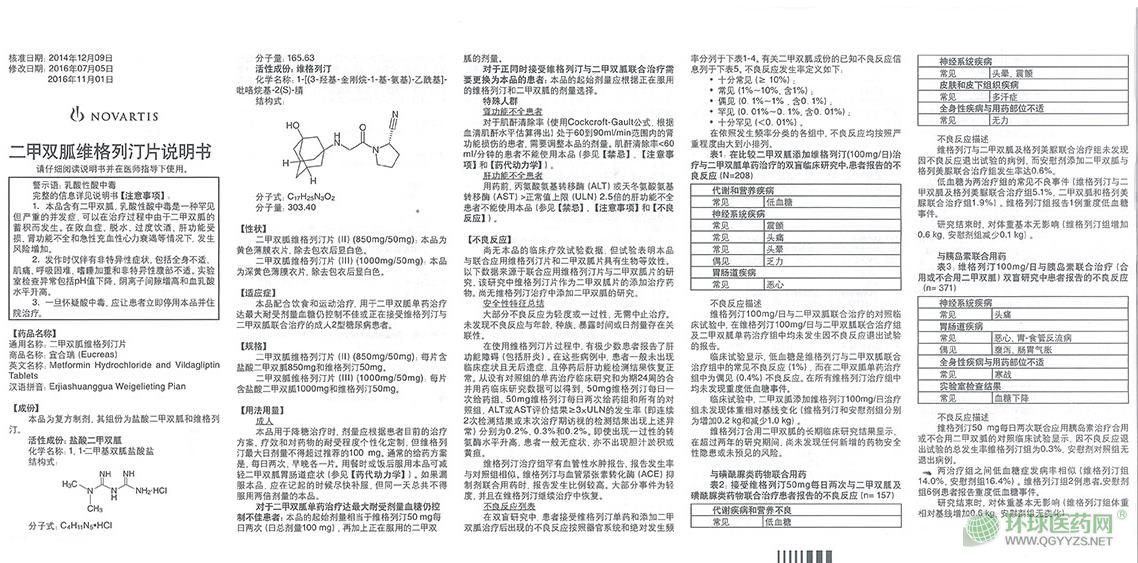 核准日期: 2014年12月09日
修改日期: 2016年07月05日
2016年11月01日
NOVARTIS
二甲双胍维格列汀片说明书
请仔细阅读说明书并在医师指导下使用。
警示语: 乳酸性酸中毒
完整的信息详见说明书【注意事项】。
1. 本品含有二甲双胍, 乳酸性酸中毒是一种罕见
但严重的并发症, 可以在治疗过程中由于二甲双胍的
蓄积而发生。在败血症, 脱水, 过度饮酒, 肝功能受
损, 肾功能不全和急性充血性心力衰竭等情况下, 发生
风险增加。
2. 发作时仅伴有非特异性症状, 包括全身不适、
肌痛, 呼吸困难, 嗜睡加重和非特异性腹部不适。实验
室检查异常包括pH值下降, 阴离子间隙增高和血乳酸
水平升高。
3. 一旦怀疑酸中毒, 应让患者立即停用本品并住
院治疗。
【药品名称】
通用名称: 二甲双胍维格列汀片
商品名称: 宜合瑞 (Eucreas)
英文名称: Metformin Hydrochloride and Vildagliptin
Tablets
汉语拼音: Erjiashuanggua Weigelieting Pian
【成份】
本品为复方制剂, 其组份为盐酸二甲双胍和维格列
汀。
活性成份: 盐酸二甲双胍
化学名称: 1, 1-二甲基双胍盐酸盐
结构式:
H₃C
N
CH₃
NH
NH
N
H
NH₂·HCl
分子式: C₄H₁₁N₅•HCl
分子量: 165.63
活性成份: 维格列汀
化学名称: 1-[(3-羟基-金刚烷-1-基-氨基)-乙酰基]-
吡咯烷基-2(S)-腈
结构式:
HO
H
N
O
N
N
H
分子式: C₁₇H₂₅N₃O₂
分子量: 303.40
【性状】
二甲双胍维格列汀片 (II) (850mg/50mg): 本品为
黄色薄膜衣片, 除去包衣后显白色。
二甲双胍维格列汀片 (III) (1000mg/50mg): 本品
为深黄色薄膜衣片, 除去包衣后显白色。
【适应症】
本品配合饮食和运动治疗, 用于二甲双胍单药治疗
达最大耐受剂量血糖仍控制不佳或正在接受维格列汀与
二甲双胍联合治疗的成人2型糖尿病患者。
【规格】
二甲双胍维格列汀片 (II) (850mg/50mg): 每片含
盐酸二甲双胍850mg和维格列汀50mg。
二甲双胍维格列汀片 (III) (1000mg/50mg): 每片
含盐酸二甲双胍1000mg和维格列汀50mg。
【用法用量】
成人
本品用于降糖治疗时, 剂量应根据患者目前的治疗
方案, 疗效和对药物的耐受程度个性化定制, 但维格列
汀最大日剂量不得超过推荐的100 mg, 通常的给药方案
是, 每日两次, 早晚各一片。用餐时或饭后服用本品可减
轻二甲双胍胃肠道症状 (参见【药代动力学】)。如果漏
服本品, 应在记起的时候尽快补服, 但同一天总共不得
服用两倍剂量的本品。
对于二甲双胍单药治疗达最大耐受剂量血糖仍控
制不佳患者: 本品的起始剂量相当于维格列汀50 mg每
日两次 (日总剂量100 mg), 再加上正在服用的二甲双
胍的剂量。
对于正同时接受维格列汀与二甲双胍联合治疗需
要更换为本品的患者: 本品的起始剂量应根据正在服用
的维格列汀和二甲双胍的剂量选择。
特殊人群
肾功能不全患者
对于肌酐清除率 (使用Cockcroft-Gault公式, 根据
血清肌酐水平估算得出) 处于60到90ml/min范围内的肾
功能损伤的患者, 需要调整本品的剂量。肌酐清除率<60
ml/分钟的患者不能使用本品 (参见【禁忌】、【注意事
项】和【药代动力学】)。
肝功能不全患者
用药前, 丙氨酸氨基转移酶 (ALT) 或天冬氨酸氨基
转移酶 (AST) >正常值上限 (ULN) 2.5倍的肝功能不全
患者不能使用本品 (参见【禁忌】、【注意事项】和【不良
反应】)。
【不良反应】
尚无本品的临床疗效试验数据, 但试验表明本品
与联合应用维格列汀片和二甲双胍片具有生物等效性。
以下数据来源于联合应用维格列汀片与二甲双胍片的研
究, 该研究中维格列汀片作为二甲双胍片的添加治疗药
物。尚无维格列汀治疗中添加二甲双胍的研究。
安全性特征总结
大部分不良反应为轻度或一过性, 无需中止治疗。
未发现不良反应与年龄, 种族, 暴露时间或日剂量存在关
联性。
在使用维格列汀片过程中, 有极少数患者报告了肝
功能障碍 (包括肝炎)。在这些病例中, 患者一般未出现
临床症状且无后遗症, 且停药后肝功能检测结果恢复正
常。从设有对照组的单药治疗临床研究和为期24周的合
并用药临床研究数据可以得到, 50mg维格列汀每日一
次给药组, 50mg维格列汀每日两次给药组和所有的对
照组, ALT或AST评价结果≥3×ULN的发生率 (即连续
2次检测结果或末次治疗期访视的检测结果出现上述异
常) 分别为0.2%, 0.3%和0.2%。即使出现一过性的转
氨酶水平升高, 患者一般无症状, 亦不出现胆汁淤积或
黄疸。
维格列汀治疗组罕有血管性水肿报告, 报告发生率
与对照组相似。维格列汀与血管紧张素转化酶 (ACE) 抑
制剂联合用药时, 报告发生比例较高。大部分事件为轻
度, 并且在维格列汀继续治疗中恢复。
不良反应列表
在双盲研究中, 患者接受维格列汀单药和添加二甲
双胍治疗后出现的不良反应按照器官系统和绝对发生频
率分列于下表1-4。有关二甲双胍成份的已知不良反应信
息列于下表5。不良反应发生率定义如下:
• 十分常见 (≥ 10%);
• 常见 (1%~10%, 含1%);
• 偶见 (0. 1%~1% ,含0. 1%);
• 罕见 (0. 01%~0. 1%, 含0. 01%);
• 十分罕见 (<0. 01%)。
在依照发生频率分类的各组中, 不良反应均按照严
重程度由大到小排列。
表1. 在比较二甲双胍添加维格列汀(100mg/日)治
疗与二甲双胍单药治疗的双盲临床研究中,患者报告的不
良反应 (N=208)
代谢和营养疾病
常见 低血糖
神经系统疾病
常见 震颤
常见 头痛
常见 头晕
偶见 乏力
胃肠道疾病
常见 恶心
不良反应描述
维格列汀100mg/日与二甲双胍联合治疗的对照临
床试验中, 在维格列汀100mg/日与二甲双胍联合治疗组
及二甲双胍单药治疗组中均未发生因不良反应退出试验
的报告。
临床试验显示, 低血糖是维格列汀与二甲双胍联
合治疗组中的常见不良反应 (1%), 而在二甲双胍单药治
疗组中为偶见 (0.4%) 不良反应。在所有维格列汀治疗组中
均未发现重度低血糖事件。
临床试验中, 二甲双胍添加维格列汀100mg/日治疗
组未发现体重相对基线变化 (维格列汀和安慰剂组分别
为增加0.2 kg和减少1.0 kg)。
维格列汀合用二甲双胍的长期临床研究结果显示,
在超过两年的研究期间, 尚未发现任何新增的药物安全
性隐患或未预见的风险。
与磺酰脲类药物联合用药
表2: 接受维格列汀50mg每日两次与二甲双胍及
磺酰脲类药物联合治疗患者报告的不良反应 (n= 157)
代谢疾病和营养不良
常见 低血糖
神经系统疾病
常见 头晕、震颤
皮肤和皮下组织疾病
常见 多汗症
全身性疾病与用药部位不适
常见 无力
不良反应描述
维格列汀与二甲双胍及格列美脲联合治疗组未发现
因不良反应退出试验的病例, 而安慰剂添加二甲双胍与
格列美脲联合治疗组发生率达0.6%。
低血糖为两治疗组的常见不良事件 (维格列汀与二
甲双胍及格列美脲联合治疗组5.1%, 二甲双胍和格列美
脲联合治疗组1.9%)。维格列汀组报告1例重度低血糖
事件。
研究结束时, 对体重基本无影响 (维格列汀组增加
0.6 kg, 安慰剂组减少0.1 kg)。
与胰岛素联合用药
表3: 维格列汀100mg/日与胰岛素联合治疗 (合
用或不合用二甲双胍) 双盲研究中患者报告的不良反应
(n= 371)
神经系统疾病
常见 头痛
胃肠道疾病
常见 恶心、胃-食管反流病
偶见 腹泻, 肠胃气胀
全身性疾病与用药部位不适
常见 寒战
实验室检查结果
常见 血糖下降
不良反应描述
维格列汀50 mg每日两次联合应用胰岛素治疗合用
或不合用二甲双胍的对照临床试验显示, 因不良反应退
出试验的总发生率维格列汀组为0.3%, 安慰剂对照组无
退出病例。
两治疗组之间低血糖症发病率相似 (维格列汀组
14.0%, 安慰剂组16.4%)。维格列汀组2例患者,安慰剂
组6例患者报告重度低血糖事件。
研究结束时, 对体重基本无影响 (维格列汀组体重
相对基线增加0.6 kg, 安慰剂组无变化)
环球医药网®
WWW.QGYYZS.NET